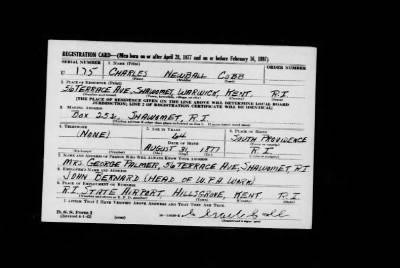 REGISTRATION CARD—(Men born on or after April 28, 1877 and on or before February 16, 1897)
SERIAL NUMBER 1. NAME (Print) ORDER NUMBER
U 175 CHARLES NEWBALL COBB
(First) (Middle) (Last)
2. PLACE OF RESIDENCE (Print)
56 TERRACE AVE, SHAWOMET, WARWICK, KENT. R.I.
[THE PLACE OF RESIDENCE GIVEN ON THE LINE ABOVE WILL DETERMINE LOCAL BOARD
JURISDICTION; LINE 2 OF REGISTRATION CERTIFICATE WILL BE IDENTICAL]
3. MAILING ADDRESS
BOX 252, SHAWOMET, R.I.
4. TELEPHONE 5. AGE IN YEARS 6. PLACE OF BIRTH
(NONE) 64 SOUTH PROVIDENCE
DATE OF BIRTH
AUGUST 31, 1877 R I
7. NAME AND ADDRESS OF PERSON WHO WILL ALWAYS KNOW YOUR ADDRESS
MRS. GEORGE PALMER, 56 TERRACE AVE, SHAWOMET, RI
8. EMPLOYER'S NAME AND ADDRESS
JOHN BERNARD (HEAD OF W.P.A WORK)
9. PLACE OF EMPLOYMENT OR BUSINESS
R.I. STATE AIRPORT HILLSGROVE, KENT R.I.
I AFFIRM THAT I HAVE VERIFIED ABOVE ANSWERS AND THAT THEY ARE TRUE.
D. S. S. Form 1